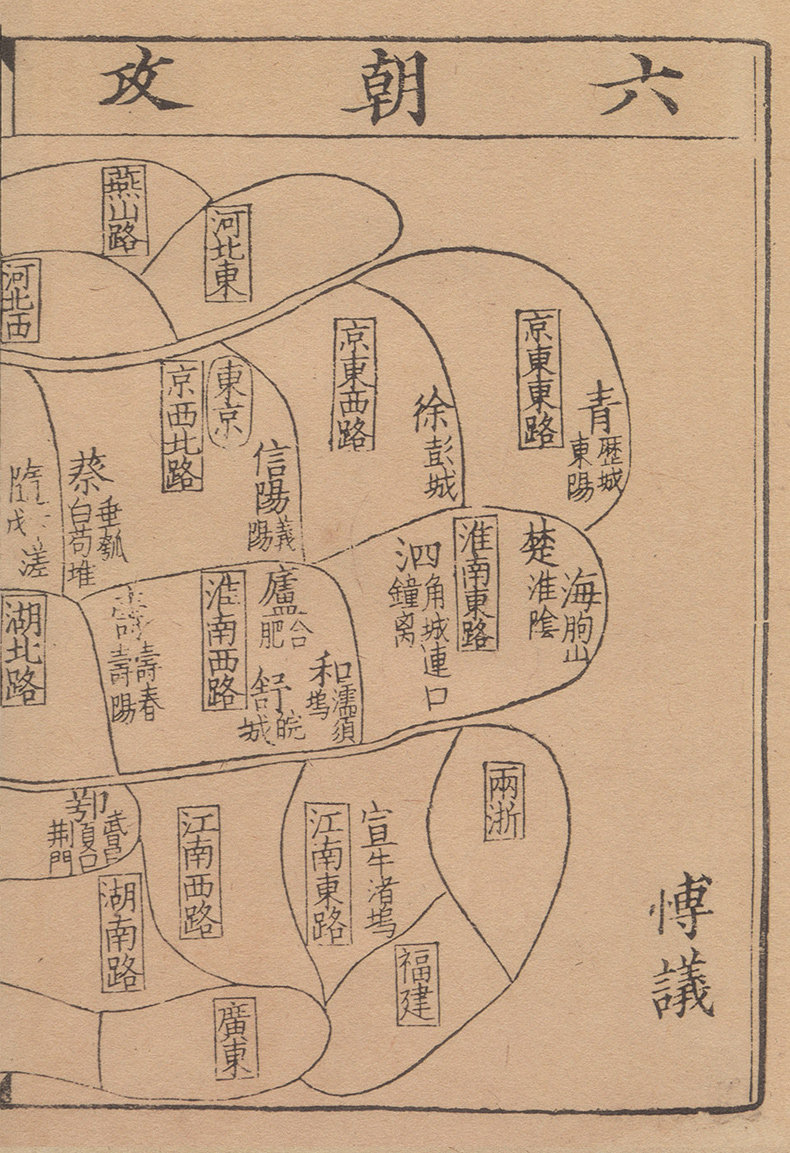 六朝攻
燕山路
河北東
河北西
京東東路
青
歷城
東陽
京東西路
徐
彭城
東京
京西北路
信陽
義
陽
蔡
垂瓠
白苟堆
隨
戍
溠
淮南東路
楚
淮陰
海朐山
泗
角城連口
鐘离
淮南西路
廬
合
肥
和
濡須
塢
舒
皖
城
壽
壽春
壽陽
湖北路
兩浙
江南東路
宣牛渚塢
江南西路
鄂
武昌
夏口
荆門
湖南路
福建
廣東
愽議